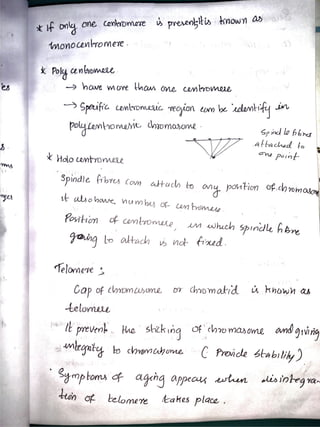 * If only one centromere is present, it is known as
monocentromere.
* Poly centromere
→ have more than one centromere
→ Specific centromeric region can be identify in
polycentromeric chromosome.
Spindle fibres
attached to
one point
* Holo centromere
Spindle fibres can attach to any position of chromosome
it also have number of centromere
Position of centromere, in which spindle fibre
going to attach is not fixed.
Telomere :
Cap of chromosome or chromatid is known as
telomere
It prevent the sticking of chromosome and giving
integrity to chromosome ( Provide stability)
Symptoms of aging appears when disintegra-
tion of telomere takes place.